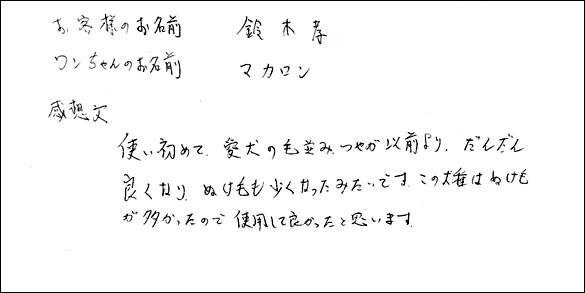 お客様のお名前 鈴木孝
ワンちゃんのお名前 マカロン
感想文
使い初めて、愛犬の毛並み、つやが以前より、だんだん
良くなり、ぬけ毛も少くなったみたいです。この犬種はぬけも
が多かったので使用して良かったと思います。